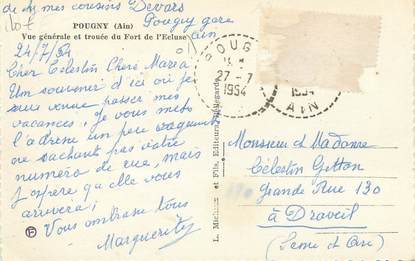 de mes cousins Devars
Pougny gare
ain
POUGNY (Ain)
Vue générale et trouée du Fort de l'Ecluse
24/7/54
Cher Celestin Chere Maria
Un souvenir d'ici où je
suis venue passer mes
vacances. Je vous mets
l'adresse un peu
ne sachant pas votre
numéro de rue, mais
J'espère qu'elle vous
arrivera.
Vous embrasse tous
Marguerite
L. Michaux et Fils, Editeurs, Bellegarde
POUG
27-7
1954
1954
AIN
Monsieur et Madame
Célestin Gitton
Grande Rue 130
à Draveil
(Seine et Oise)